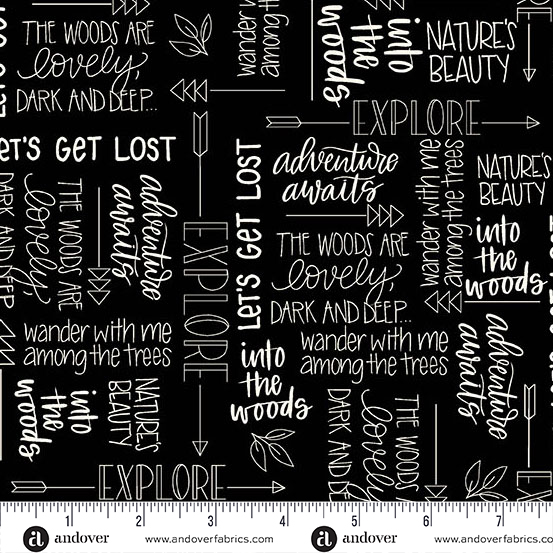 LET'S GET LOST
THE WOODS ARE
lovely,
DARK AND DEEP...
wander with me
among the trees
into
the
woods
NATURE'S
BEAUTY
EXPLORE
LET'S GET LOST
adventure
awaits
wander with me
among the trees
NATURE'S
BEAUTY
DARK AND DEEP
lovely,
THE WOODS ARE
adventure
awaits
EXPLORE
LET'S GET LOST
THE WOODS ARE
lovely,
DARK AND DEEP...
into
the
woods
wander with me
among the trees
wander with me
among the trees
into
the
woods
adventure
awaits
into
the
woods
NATURE'S
BEAUTY
THE WOODS ARE
lovely
DARK AND DE
EXPLORE
1 2 3 4 5 6 7
a andover www.andoverfabrics.com a andover www.andoverfabrics.com